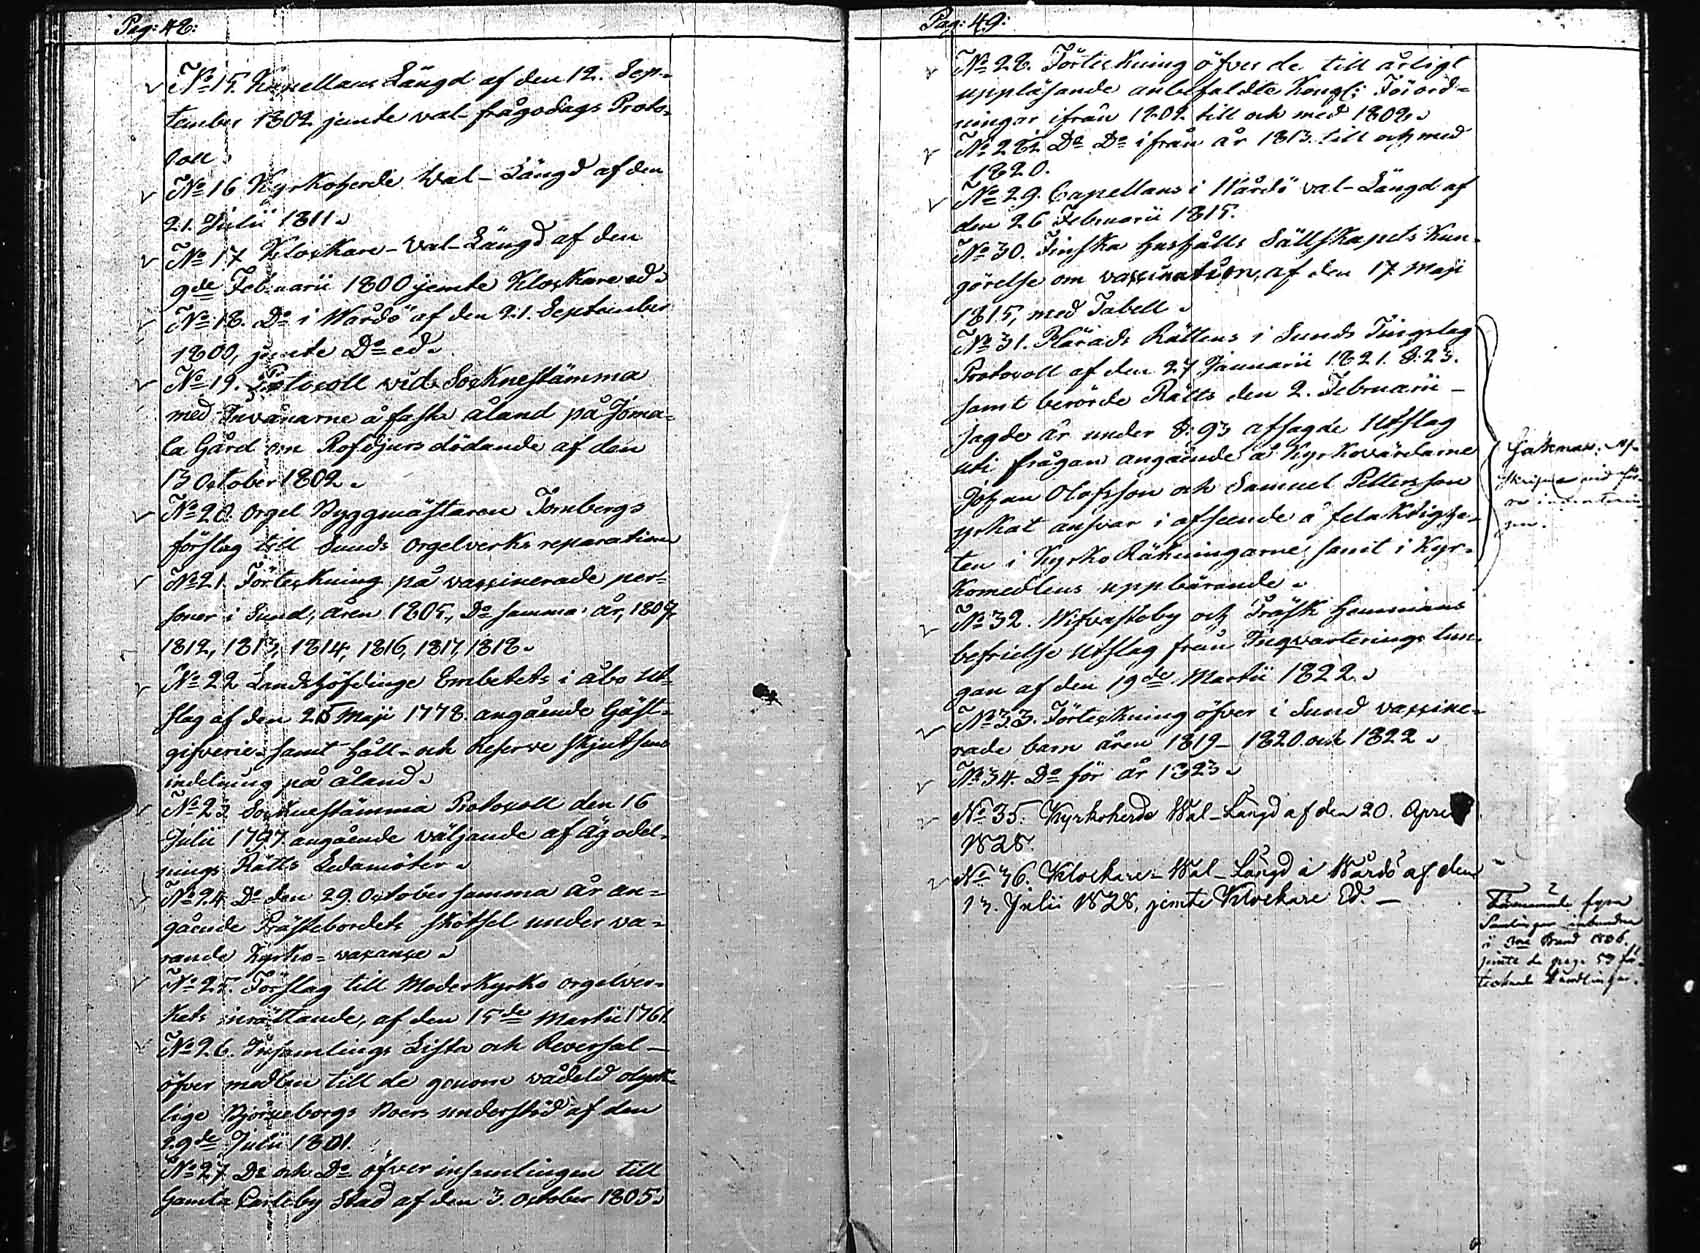 Pag: 48:
No 15. Kapellans Längd af den 12. Sep-
tember 1802 jemte val-frågodags Proto-
coll.
No 16 Kyrkoherde Wal-Längd af den
21. Julii 1811.
No 17 Klockare-Val-Längd af den
9de Februarii 1800 jemte Klockare ed.
No 18. Do i Wårdö af den 21. September
1800, jemte Do ed.
No 19. Protocoll vid Socknestämma
med Invånarne å fasta åland på Joma-
la Gård om Rofdjurs dödande af den
13 October 1802.
No 20. Orgel Byggmästaren Tornbergs
förslag till Sunds Orgelverks reparation
No 21. Förteckning på vaccinerade per-
soner i Sund, åren 1805, Do samma år, 1807
1812, 1813, 1814, 1816, 1817, 1818.
No 22 Landshöfdinge Embetets i åbo Ut-
slag af den 25 Maji 1778. angående Gäst-
gifverie- samt Håll- och Reserve skjutsens
indelning på åland.
No 23 Socknestämma Protocoll den 16
Julii 1797. angående väljande af ägodel-
nings Rätts Ledamöter.
No 24 Do den 29. October samma år an-
gående Prästebordets skötsel under va-
rande Kyrko-vacance.
No 25. Förslag till Moderkyrko orgelver-
kets inrättande, af den 15de Martii 1761.
No 26. Insamlings Lista och Reversal
öfver medlen till de genom vådeld olyck-
lige Björneborgs Boers understöd af den
29de Julii 1801.
No 27. Do och Do öfver insamlingen till
Gamla Carleby Stad af den 3. October 1805.
Pag: 49:
No 28. Förteckning öfver de till årligt
uppläsande anbefaldte Kongl: Förord-
ningar ifrån 1802 till och med 1808.
No 28½ Do Do ifrån år 1813. till och med
1820.
No 29. Capellans i Wårdö val-Längd af
den 26 Februarii 1815.
No 30. Finska Hushålls Sällskapets Kun-
görelse om vaccination, af den 17 Maji
1815, med Tabell.
No 31. Härads Rättens i Sunds Tingslag
Protocoll af den 27 Januarii 1821. §. 23.
samt berörde Rätts den 2. Februarii
sagde år under §. 93 afsagde Utslag
uti frågan angående å Kyrkovärdarne
Johan Olofsson och Samuel Pettersson
yrkat answar i afseende å felaktighe-
ten i Kyrko Räkningarne, samt i Kyr-
komedlens uppbärande.
No 32. Wifvastoby och Träsk Hemmans
befrielse Utslag från Inqvarterings tun-
gan af den 19de Martii 1822.
No 33. Förteckning öfver i Sund vaccine-
rade barn åren 1819-1820. och 1822.
No 34. Do för år 1823.
No 35. Kyrkoherde Wal-Längd af den 20. April
1828.
No 36. Klockare-Wal-Längd i Wårdö af den
13. Julii 1828, jemte Klockare Ed.
i ena Band 1806.
jemte de page 53 för-
tecknade Handlingar.